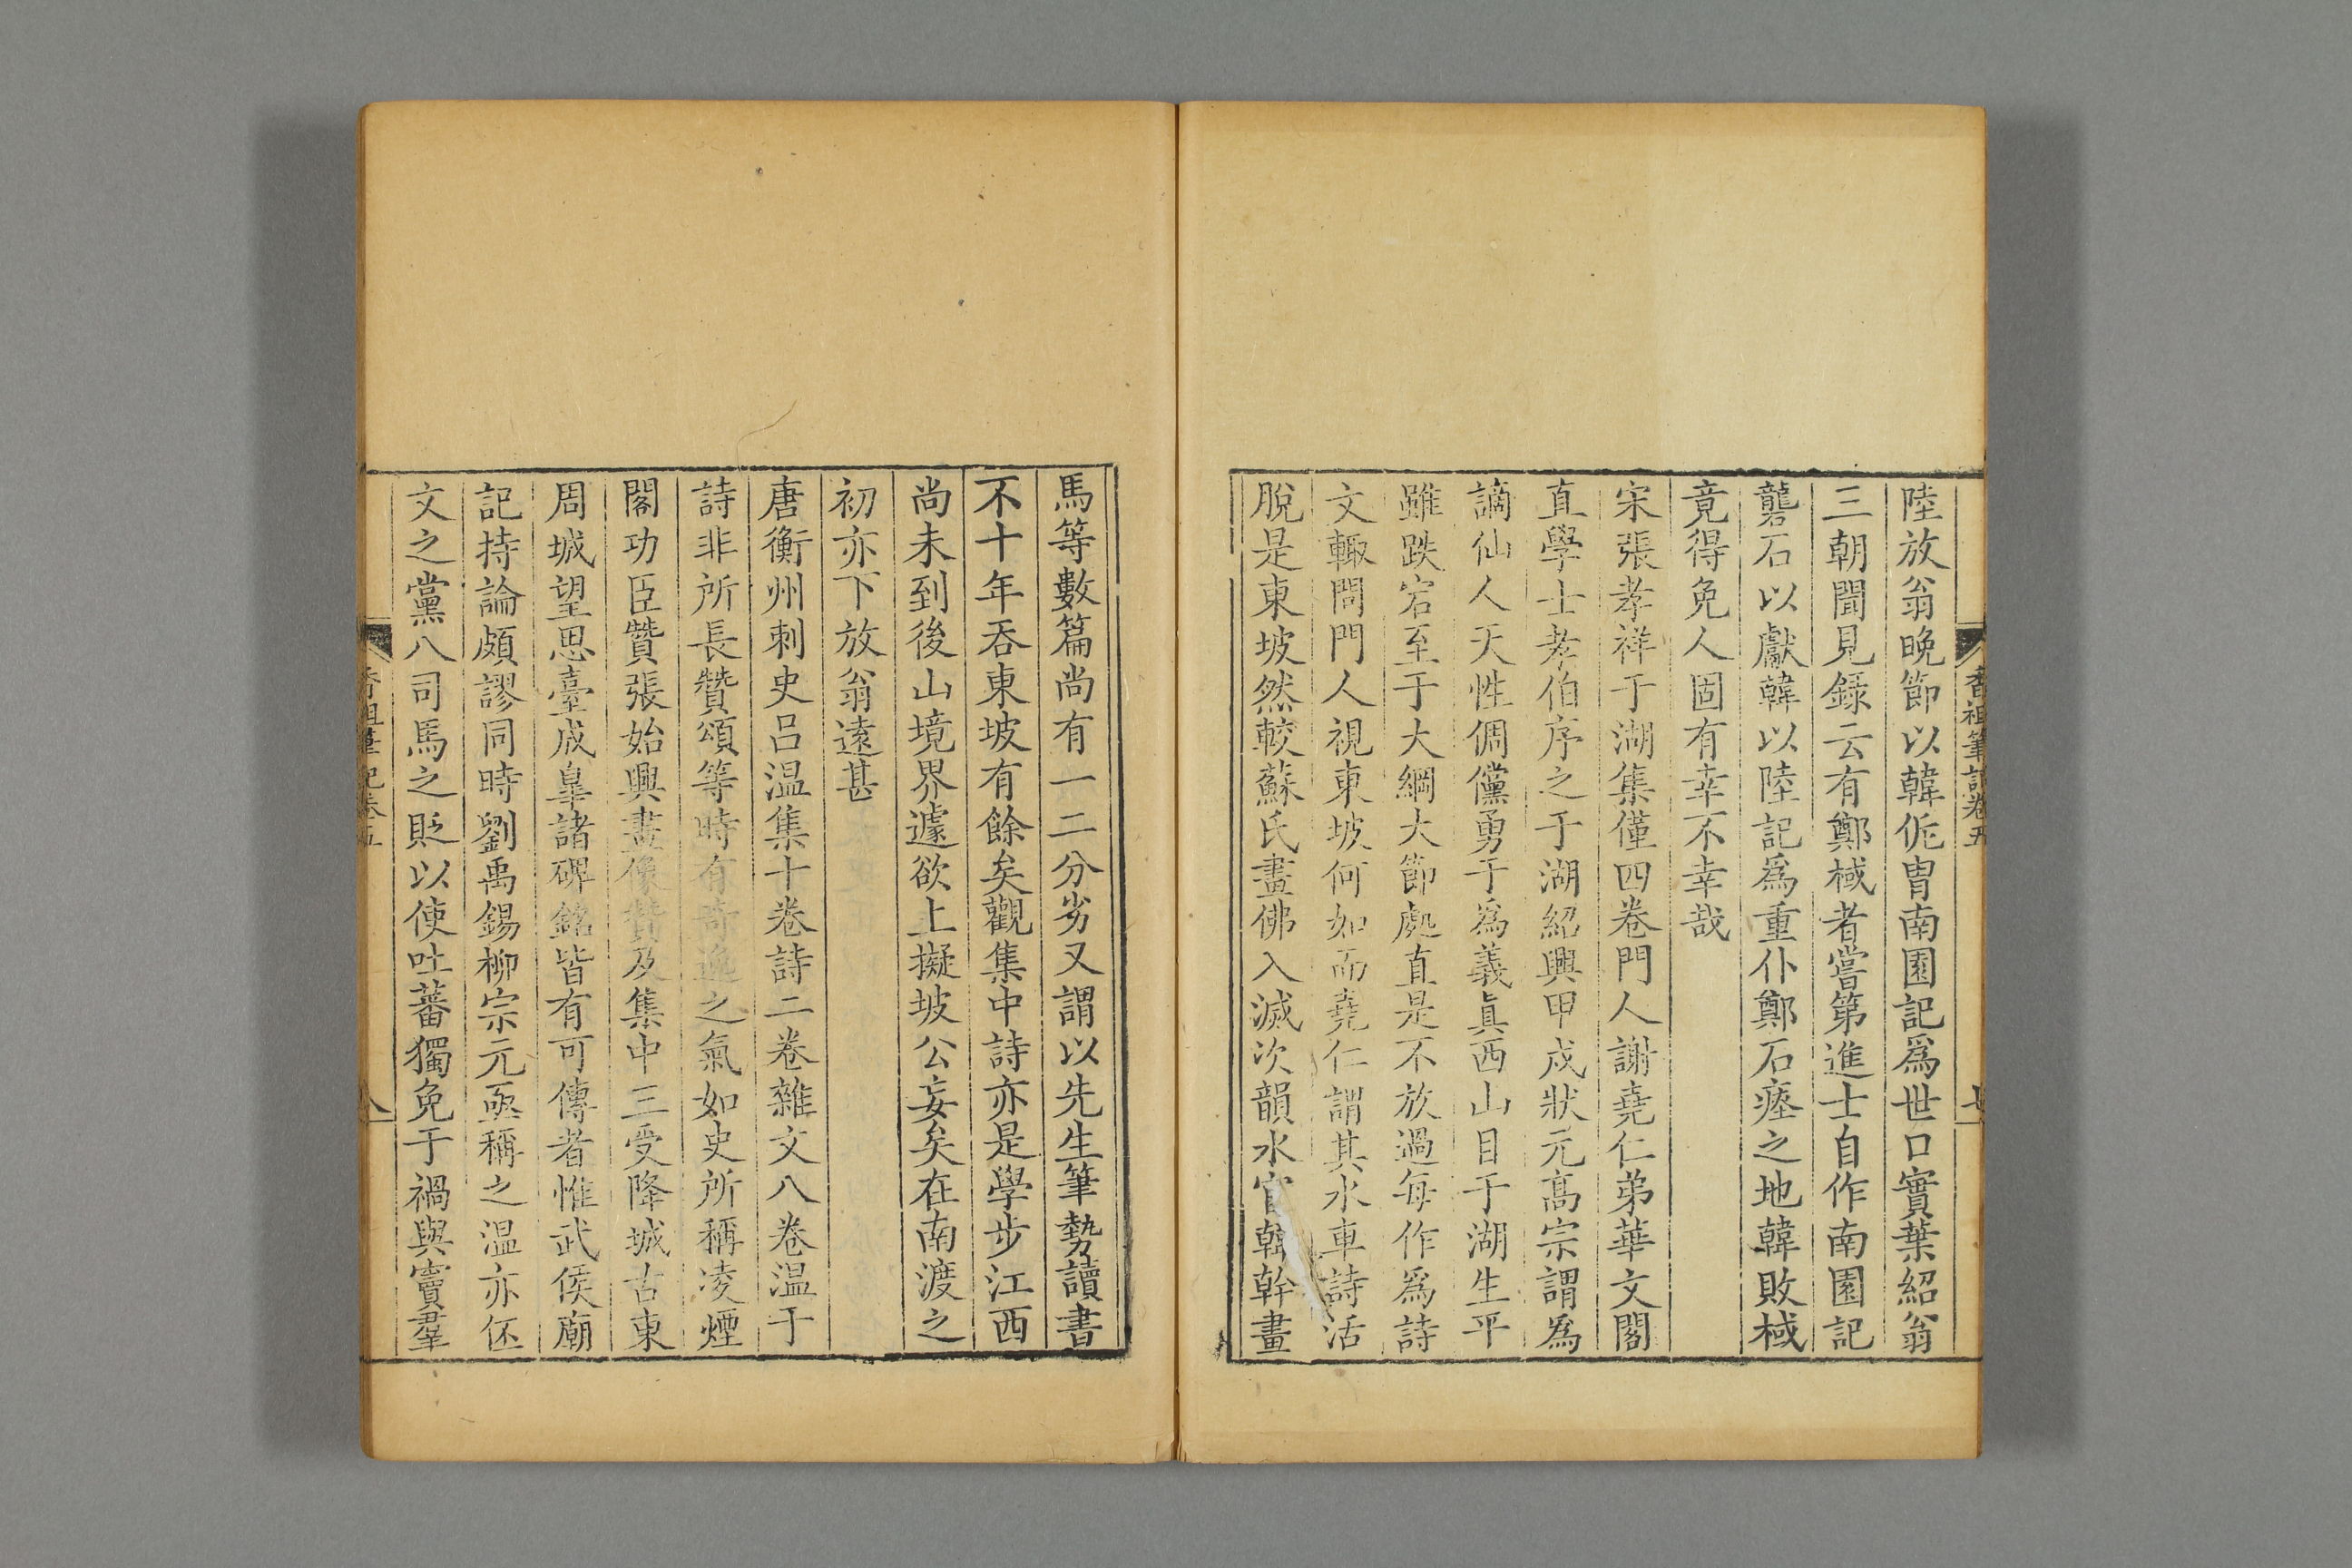 香祖筆記卷五
七
陸放翁晚節以韓侂胄南園記爲世口實葉紹翁
三朝聞見錄云有鄭棫者嘗第進士自作南園記
礱石以獻韓以陸記爲重仆鄭石瘞之地韓敗棫
竟得免人固有幸不幸哉
宋張孝祥于湖集僅四卷門人謝堯仁弟華文閣
直學士孝伯序之于湖紹興甲戌狀元高宗謂爲
謫仙人天性倜儻勇于爲義真西山目于湖生平
雖跌宕至于大綱大節處直是不放過每作爲詩
文輙問門人視東坡何如而堯仁謂其水車詩活
脫是東坡然較蘇氏畫佛入滅次韻水官韓幹畫
馬等數篇尚有一二分劣又謂以先生筆勢讀書
不十年吞東坡有餘矣觀集中詩亦是學步江西
尚未到後山境界遽欲上擬坡公妄矣在南渡之
初亦下放翁遠甚
唐衡州刺史呂溫集十卷詩二卷雜文八卷溫于
詩非所長贊頌等時有奇逸之氣如史所稱凌煙
閣功臣贊張始興畫像贊及集中三受降城古東
周城望思臺成皐諸碑銘皆有可傳者惟武侯廟
記持論頗謬同時劉禹錫柳宗元亟稱之溫亦伾
文之黨八司馬之貶以使吐蕃獨免于禍與竇羣
香祖筆記卷五
八